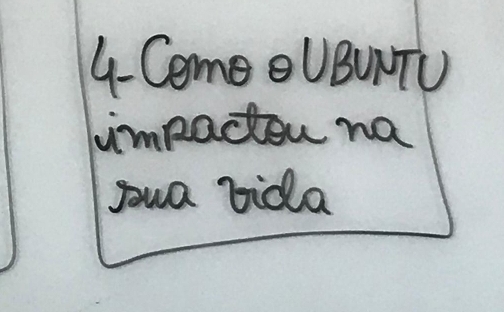 4-Como o UBUNTU
impactou na
sua vida